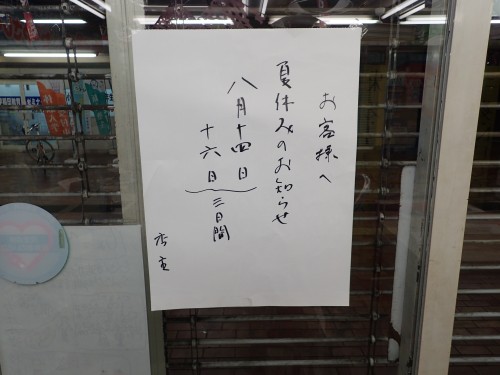 お客様へ
夏休みのお知らせ
八月十四日
十六日
三日間
店主